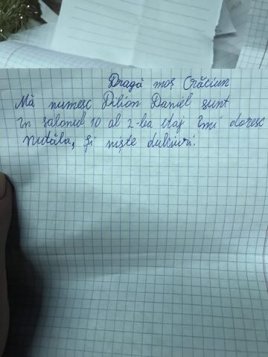 Dragă moș Crăciun
Mă numesc Daniel sunt
în salonul 10 al 2-lea etaj îmi doresc
și niște dulciuri.